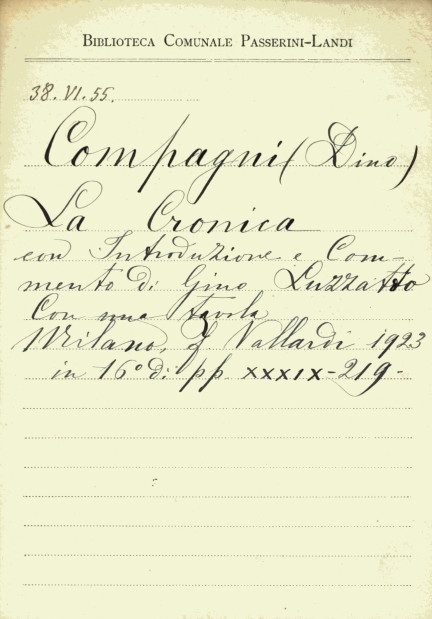 BIBLIOTECA COMUNALE PASSERINI-LANDI
38.VI.55.
Compagni (Dino)
La Cronica
con Introduzione e Com-
mento di Gino Luzzatto
Con una tavola
Milano, F Vallardi 1923
in 16° di pp. XXXIX-219-